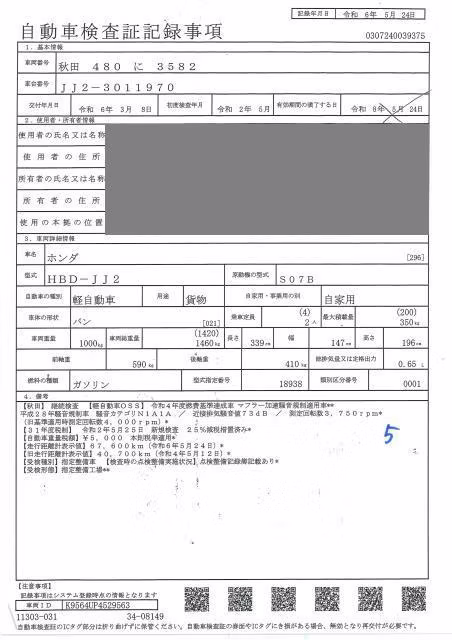 記録年月日 令和 6年 5月 24日
自動車検査証記録事項
0307240039375
1. 基本情報
車両番号 秋田 480 に 3582
車台番号 JJ2-3011970
交付年月日 令和 6年 3月 8日 初度検査年月 令和 2年 5月 有効期間の満了する日 令和 8年 5月 24日
2. 使用者・所有者情報
使用者の氏名又は名称
使用者の住所
所有者の氏名又は名称
所有者の住所
使用の本拠の位置
3. 車両詳細情報
車名 ホンダ [296]
型式 HBD-JJ2 原動機の型式 S07B
自動車の種別 軽自動車 用途 貨物 自家用・事業用の別 自家用
車体の形状 バン [021] 乗車定員 (4) 2人 最大積載量 (200) 350kg
車両重量 1000kg 車両総重量 (1420) 1460kg 長さ 339cm 幅 147cm 高さ 196cm
前軸重 590kg 後軸重 410kg 総排気量又は定格出力 0.65 L
燃料の種類 ガソリン 型式指定番号 18938 類別区分番号 0001
4. 備考
【秋田】 継続検査 【軽自動車OSS】 令和4年度燃費基準達成車 マフラー加速騒音規制適用車**
平成28年騒音規制車 騒音カテゴリN1A1A / 近接排気騒音値73dB / 測定回転数3,750rpm*
(旧基準適用時測定回転数4,000rpm)*
【31年度税制】 令和2年5月25日 新規検査 25%減税措置済み*
【自動車重量税額】¥5,000 本則税率適用*
【走行距離計表示値】67,600km(令和6年5月24日)*
【旧走行距離計表示値】40,700km(令和4年5月12日)*
【受検種別】指定整備車 【検査時の点検整備実施状況】点検整備記録簿記載あり*
【受検形態】指定整備工場**
5
【注意事項】
記録事項はシステム登録時点の情報となります
車両ID K9564UP4529563
11303-031 34-08149
自動車検査証のICタグ部分は折り曲げずに保管ください。自動車検査証の券面やICタグにき損がある場合、無効となり再交付が必要です。